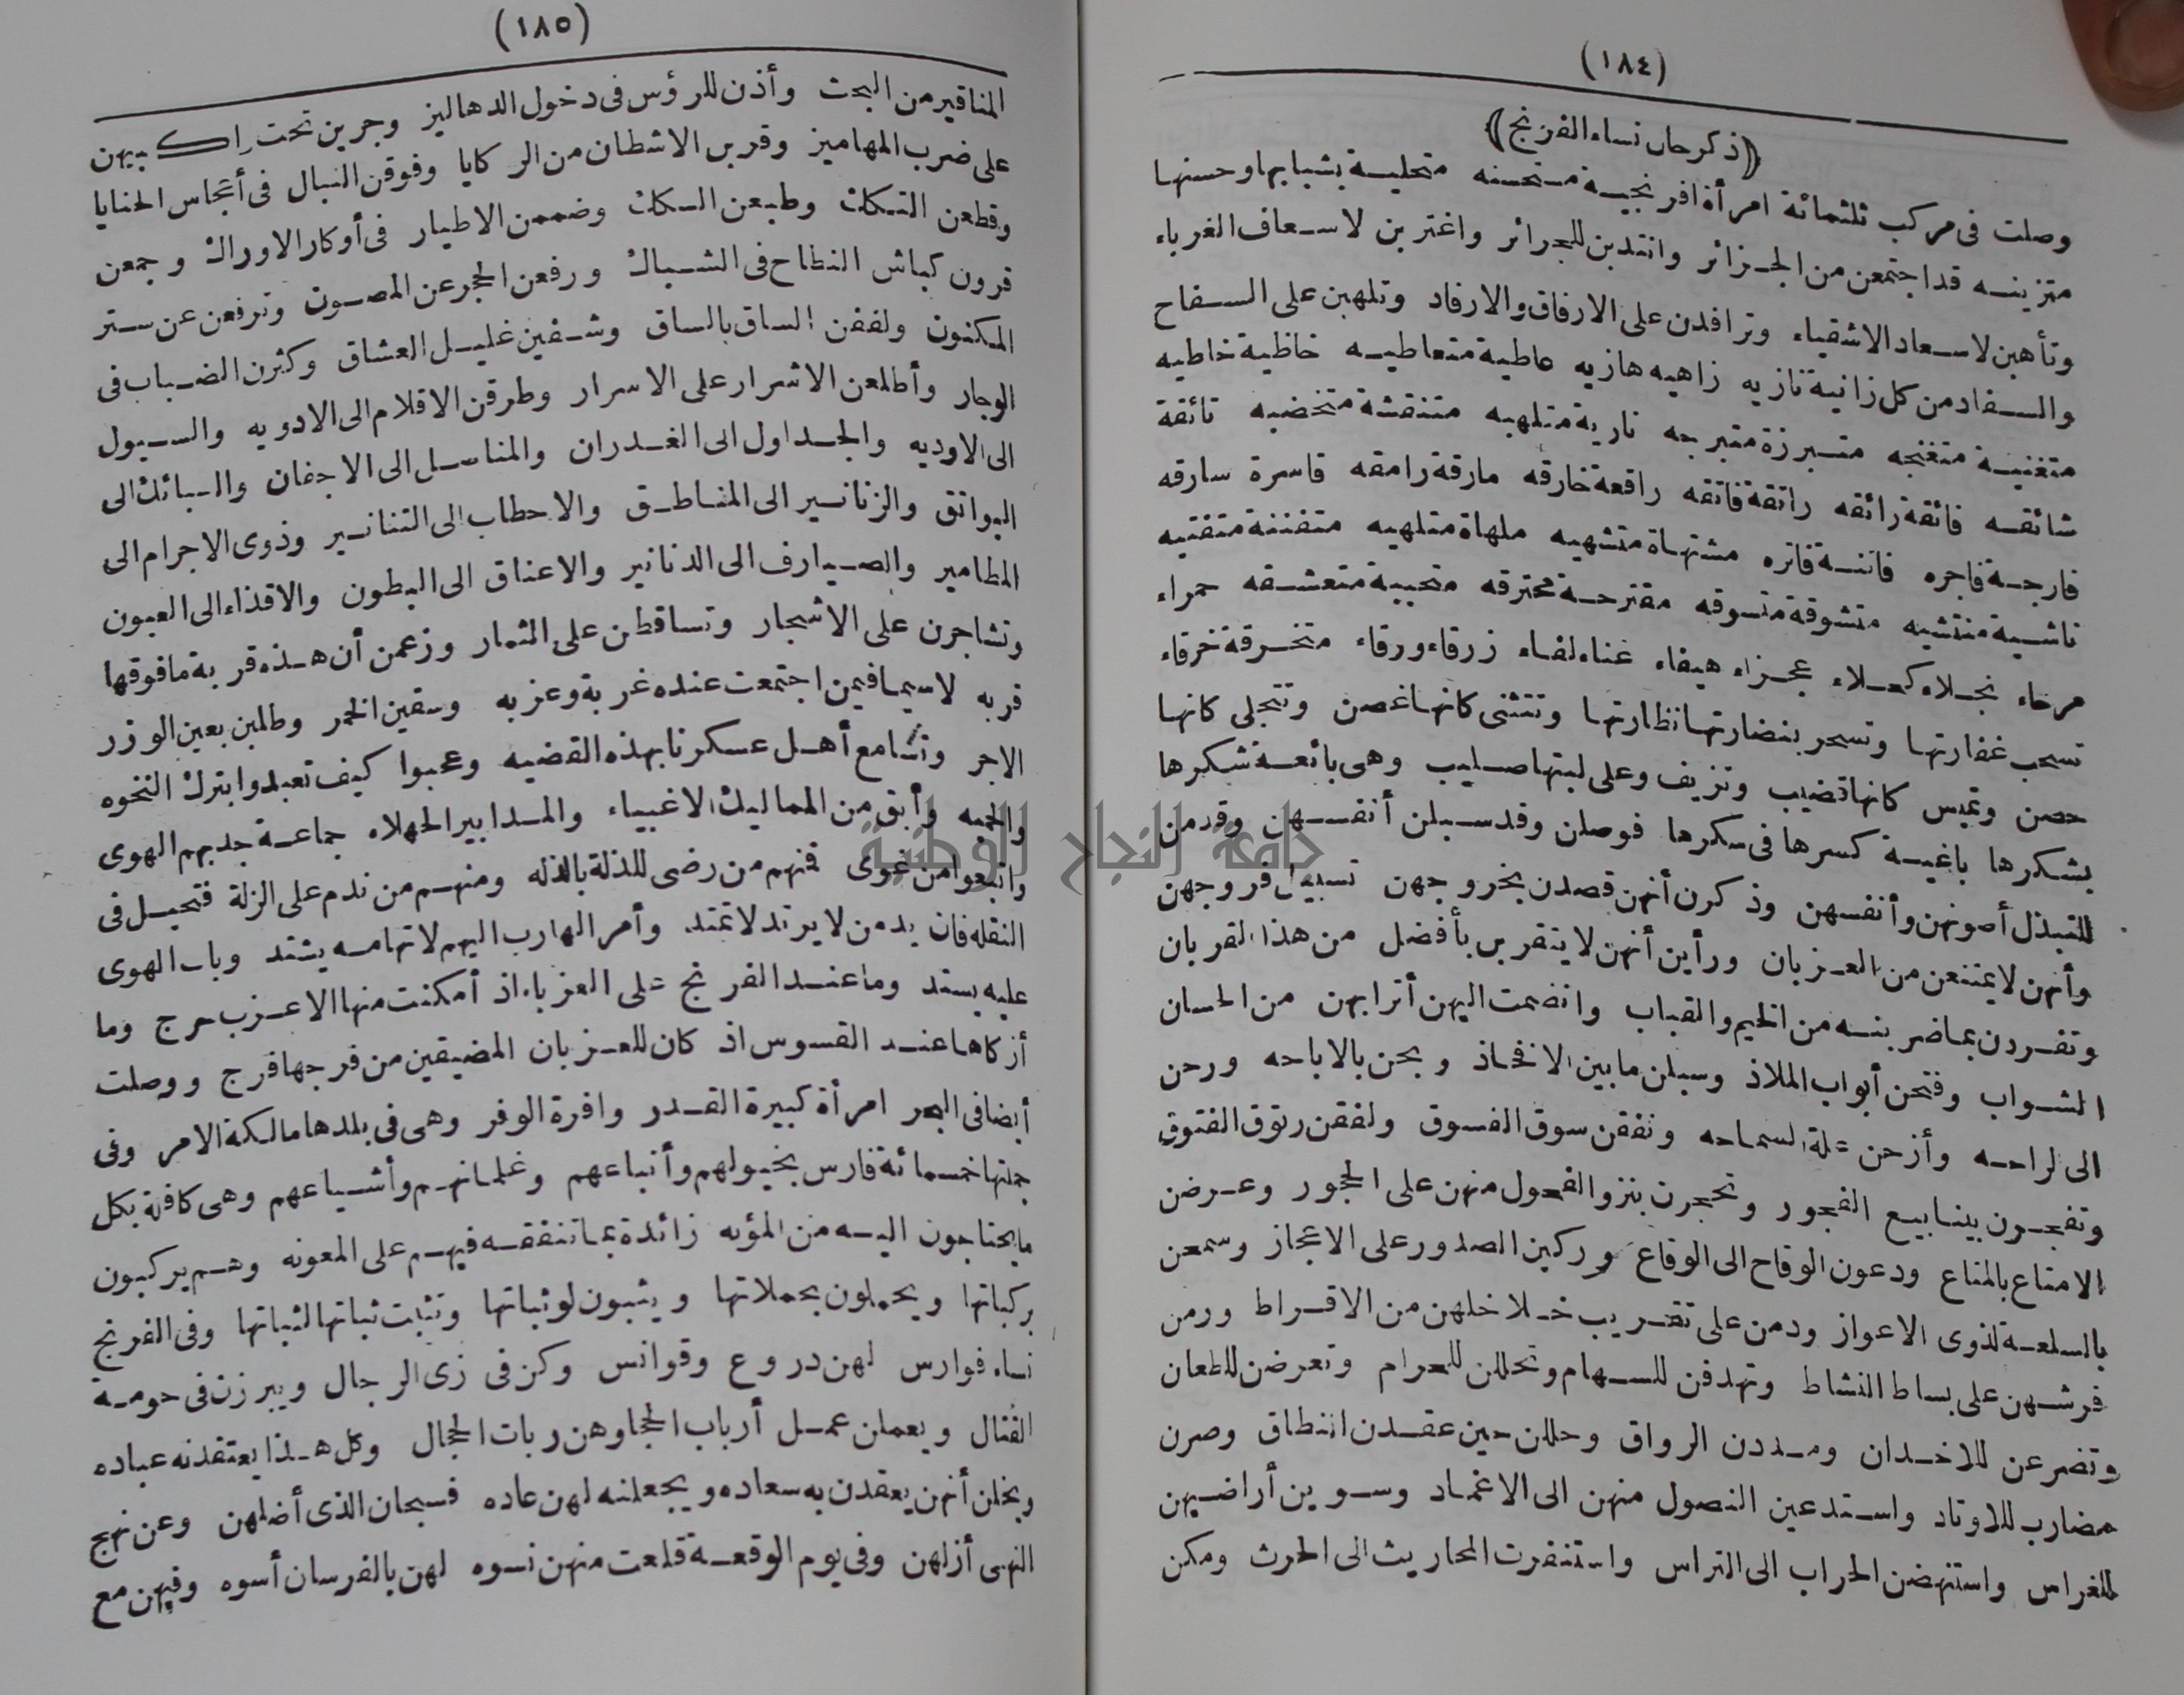 (١٨٤)
﴿ذكر حال نساء الفرنج﴾
وصلت فى مركب ثلثمائة امرأة افرنجية مستحسنه متحلية بشبابها وحسنها
متزينه قد اجتمعن من الجزائر وانتدبن للجرائر واغتربن لاسعاف الغرباء
وتأهبن لاسعاد الاشقياء وترافدن على الارفاق والارفاد وتلهبن على السفاح
والسفاد من كل زانية نازيه زاهيه هازيه عاطية متعاطيه خاظية خاطيه
متغنية متغنجه متبرزة متبرجه نارية متلهبه متنقشة متخضبه تائقة
شائقه فائقة رائقه راتقة فاتقه راقعة خارقه مارقة رامقه قاسرة سارقه
فارجة فاجره فاتنة فاتره مشتهاة متشهيه ملهاة متلهيه متفننة متفتيه
ناشية منتشيه متشوقة متسوقه مقترحة محترقه متحببة متعشقه حمراء
مرحاء نجلاء كحلاء عجزاء هيفاء غناء لفاء زرقاء ورقاء متخرقة خرقاء
تسحب غفارتها وتسحر بنضارتها نظارتها وتتثنى كانها غصن وتتجلى كانها
حصن وتميس كانها قضيب وتزيف وعلى لبتها صليب وهى بائعة شكرها
بشكرها باغية كسرها فى سكرها فوصلن وقد سبلن أنفسهن وقدمن
للتبذل أصونهن وأنفسهن وذكرن أنهن قصدن بخروجهن تسبيل فروجهن
وأنهن لا يمتنعن من العزبان ورأين أنهن لا يتقربن بأفضل من هذا القربان
وتفردن بما ضربنه من الخيم والقباب وانضمت اليهن أترابهن من الحسان
الشواب وفتحن أبواب الملاذ وسبلن ما بين الافخاذ وبحن بالاباحه ورحن
الى الراحه وأزحن علة السماحه ونفقن سوق الفسوق ولفقن رتوق الفتوق
وتفجرن بينابيع الفجور وتحجرن بنزو الفحول منهن على الحجور وعرضن
الامتاع بالمتاع ودعون الوقاح الى الوقاع وركبن الصدور على الاعجاز وسمحن
بالسلعة لذوى الاعواز ودمن على تقريب خلاخلهن من الاقراط ورمن
فرشهن على بساط النشاط وتهدفن للسهام وتحللن للحرام وتعرضن للطعان
وتضرعن للاخدان ومددن الرواق وحللن حين عقدن النطاق وصرن
مضارب للاوتاد واستدعين النصول منهن الى الاغماد وسوين أراضيهن
للغراس واستنهضن الحراب الى التراس واستنفرت المحاريث الى الحرث ومكن
(١٨٥)
المناقير من البحث وأذن للرؤس فى دخول الدهاليز وجرين تحت راكبيهن
على ضرب المهاميز وقربن الاشطان من الركايا وفوقن النبال فى أعجاس الحنايا
وقطعن التكك وطبعن السكك وضممن الاطيار فى أوكار الاوراك وجمعن
قرون كباش النطاح فى الشباك ورفعن الحجر عن المصون وترفعن عن ستر
المكنون ولففن الساق بالساق وشفين غليل العشاق وكثرن الضباب فى
الوجار وأطلعن الاشرار على الاسرار وطرقن الاقلام الى الادويه والسيول
الى الاوديه والجداول الى الغدران والمناصل الى الاجفان والسبائك الى
البواتق والزنانير الى المناطق والاحطاب الى التنانير وذوى الاجرام الى
المطامير والصيارف الى الدنانير والاعناق الى البطون والاقذاء الى العيون
وتشاجرن على الاشجار وتساقطن على الثمار وزعمن أن هذه قربة ما فوقها
قربه لا سيما فيمن اجتمعت عنده غربة وعزبه وسقين الخمر وطلبن بعين الوزر
الاجر وتسامع أهل عسكرنا بهذه القضيه وعجبوا كيف تعبدوا بترك النخوه
والحميه وأبق من المماليك الاغبياء والمدابير الجهلاء جماعة جذبهم الهوى
واتبعوا من غوى فمنهم من رضى للذلة بالذله ومنهم من ندم على الزلة فتحيل فى
النقله فان يد من لا يرتد لا تمتد وأمر الهارب اليهم لاتهامه يشتد وباب الهوى
عليه يستد وما عند الفرنج على العزباء اذ أمكنت منها الاعزب حرج وما
أزكاها عند القسوس اذ كان للعزبان المضيقين من فرجها فرج ووصلت
أيضا فى البحر امرأة كبيرة القدر وافرة الوفر وهى فى بلدها مالكة الامر وفى
جملتها خمسمائة فارس بخيولهم وأتباعهم وغلمانهم وأشياعهم وهى كافلة بكل
ما يحتاجون اليه من المؤنه زائدة بما تنفقه فيهم على المعونه وهم يركبون
بركباتها ويحملون بحملاتها ويثبون لوثباتها وتثبت ثباتها لثباتها وفى الفرنج
نساء فوارس لهن دروع وقوانس وكن فى زى الرجال ويبرزن فى حومة
القتال ويعملن عمل أرباب الحجا وهن ربات الحجال وكل هذا يعتقدنه عباده
ويخلن أنهن يعقدن به سعاده ويجعلنه لهن عاده فسبحان الذى أضلهن وعن نهج
النهى أزلهن وفى يوم الوقعة قلعت منهن نسوه لهن بالفرسان أسوه وفيهن مع
جامعة النجاح الوطنية